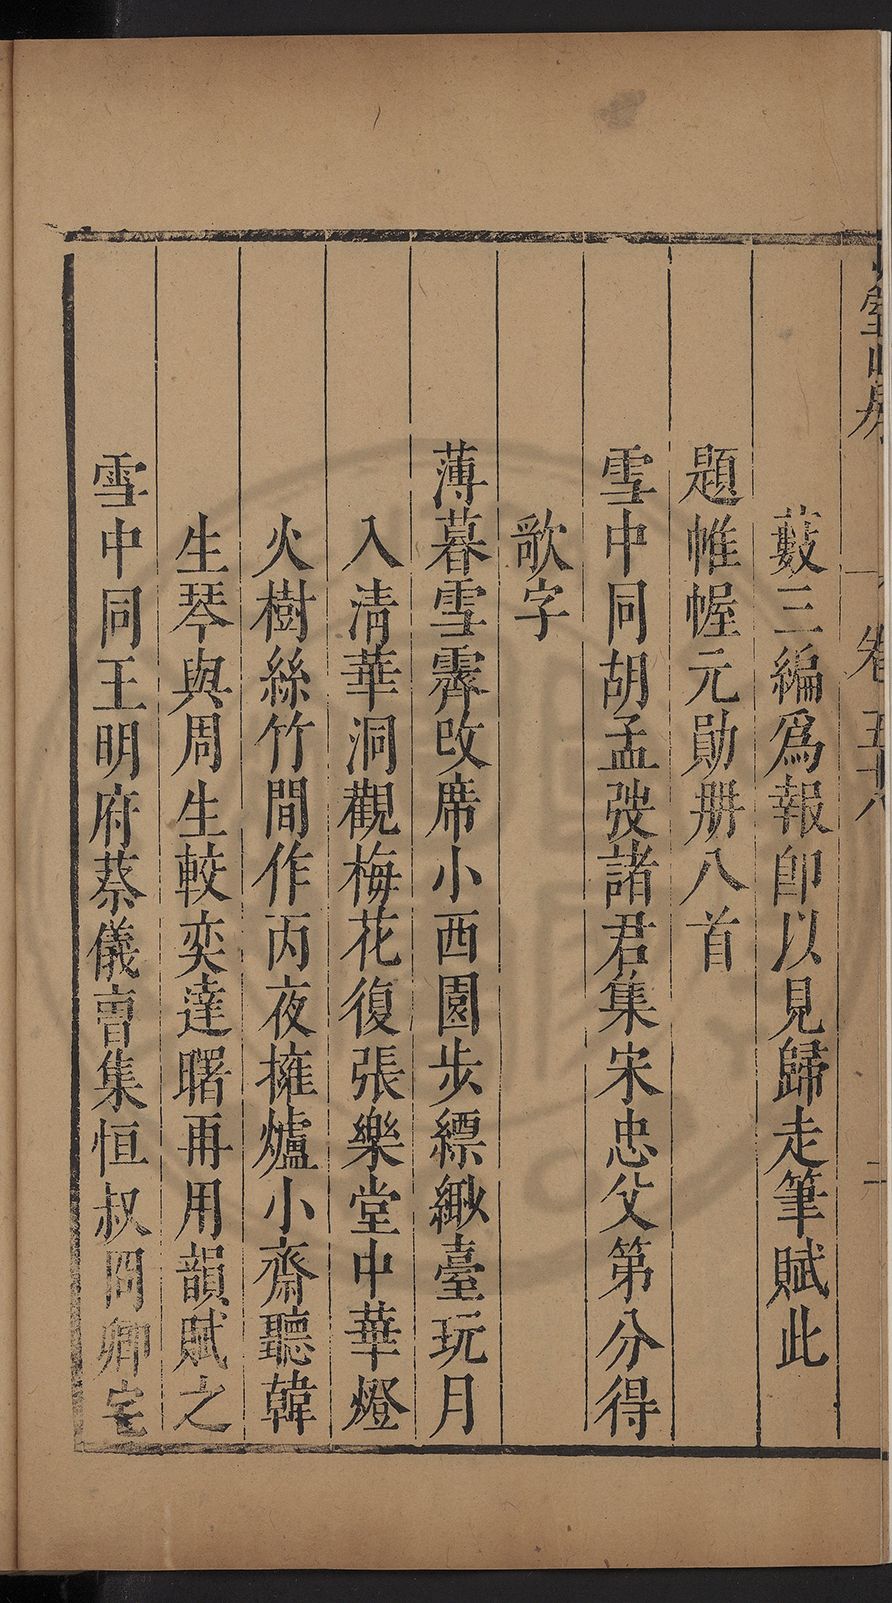 藪三編爲報卽以見歸走筆賦此
題帷幄元勛册八首
雪中同胡孟弢諸君集宋忠父第分得
歌字
薄暮雪霽改席小西園步縹緲臺玩月
入清華洞觀梅花復張樂堂中華燈
火樹絲竹間作丙夜擁爐小齋聽韓
生琴與周生較奕達曙再用韻賦之
雪中同王明府蔡儀曹集恒叔冏卿宅
卷五十八
二